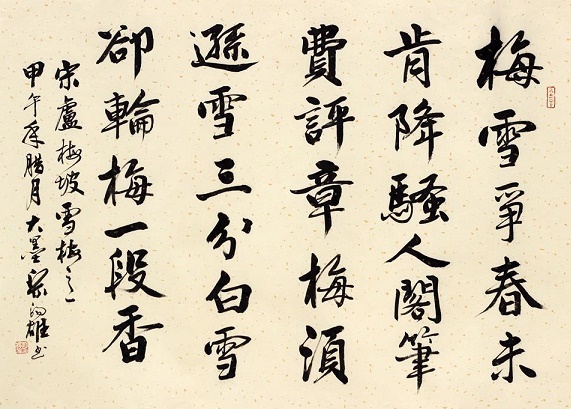 梅雪爭春未
肯降騷人閣筆
費評章梅須
遜雪三分白雪
卻輪梅一段香
宋盧梅坡雪梅之一
甲午年腊月大墨雄书